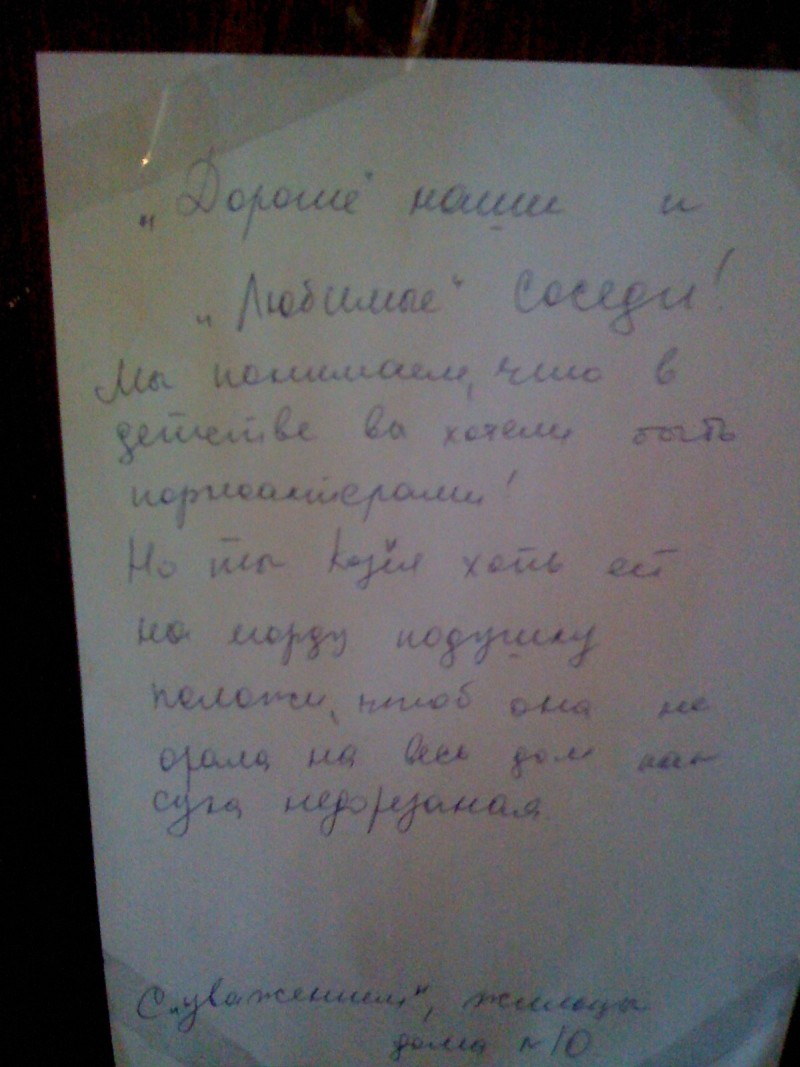 „Дорогие" наши и
„Любимые" соседи!
Мы понимаем, что в
детстве вы хотели быть
порноактёрами!
Но ты козёл хоть ей
на морду подушку
положи, чтоб она не
орала на весь дом как
сука недорезаная
С „уважением", жильцы
дома №10